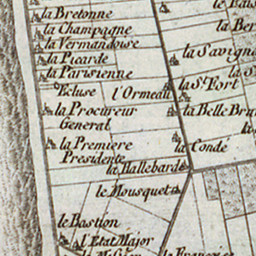 la Bretonne
la Champagne
la Vermandoise
la Picarde
la Parisienne
l'Ecluse
l'Ormeau
la Procureur
General
la Premiere
Presidente
la Hallebarde
le Mousquet
le Bastion
l'Etat Major
la Savign
la St. Fort
la Belle Bru
la Conde
la Ber